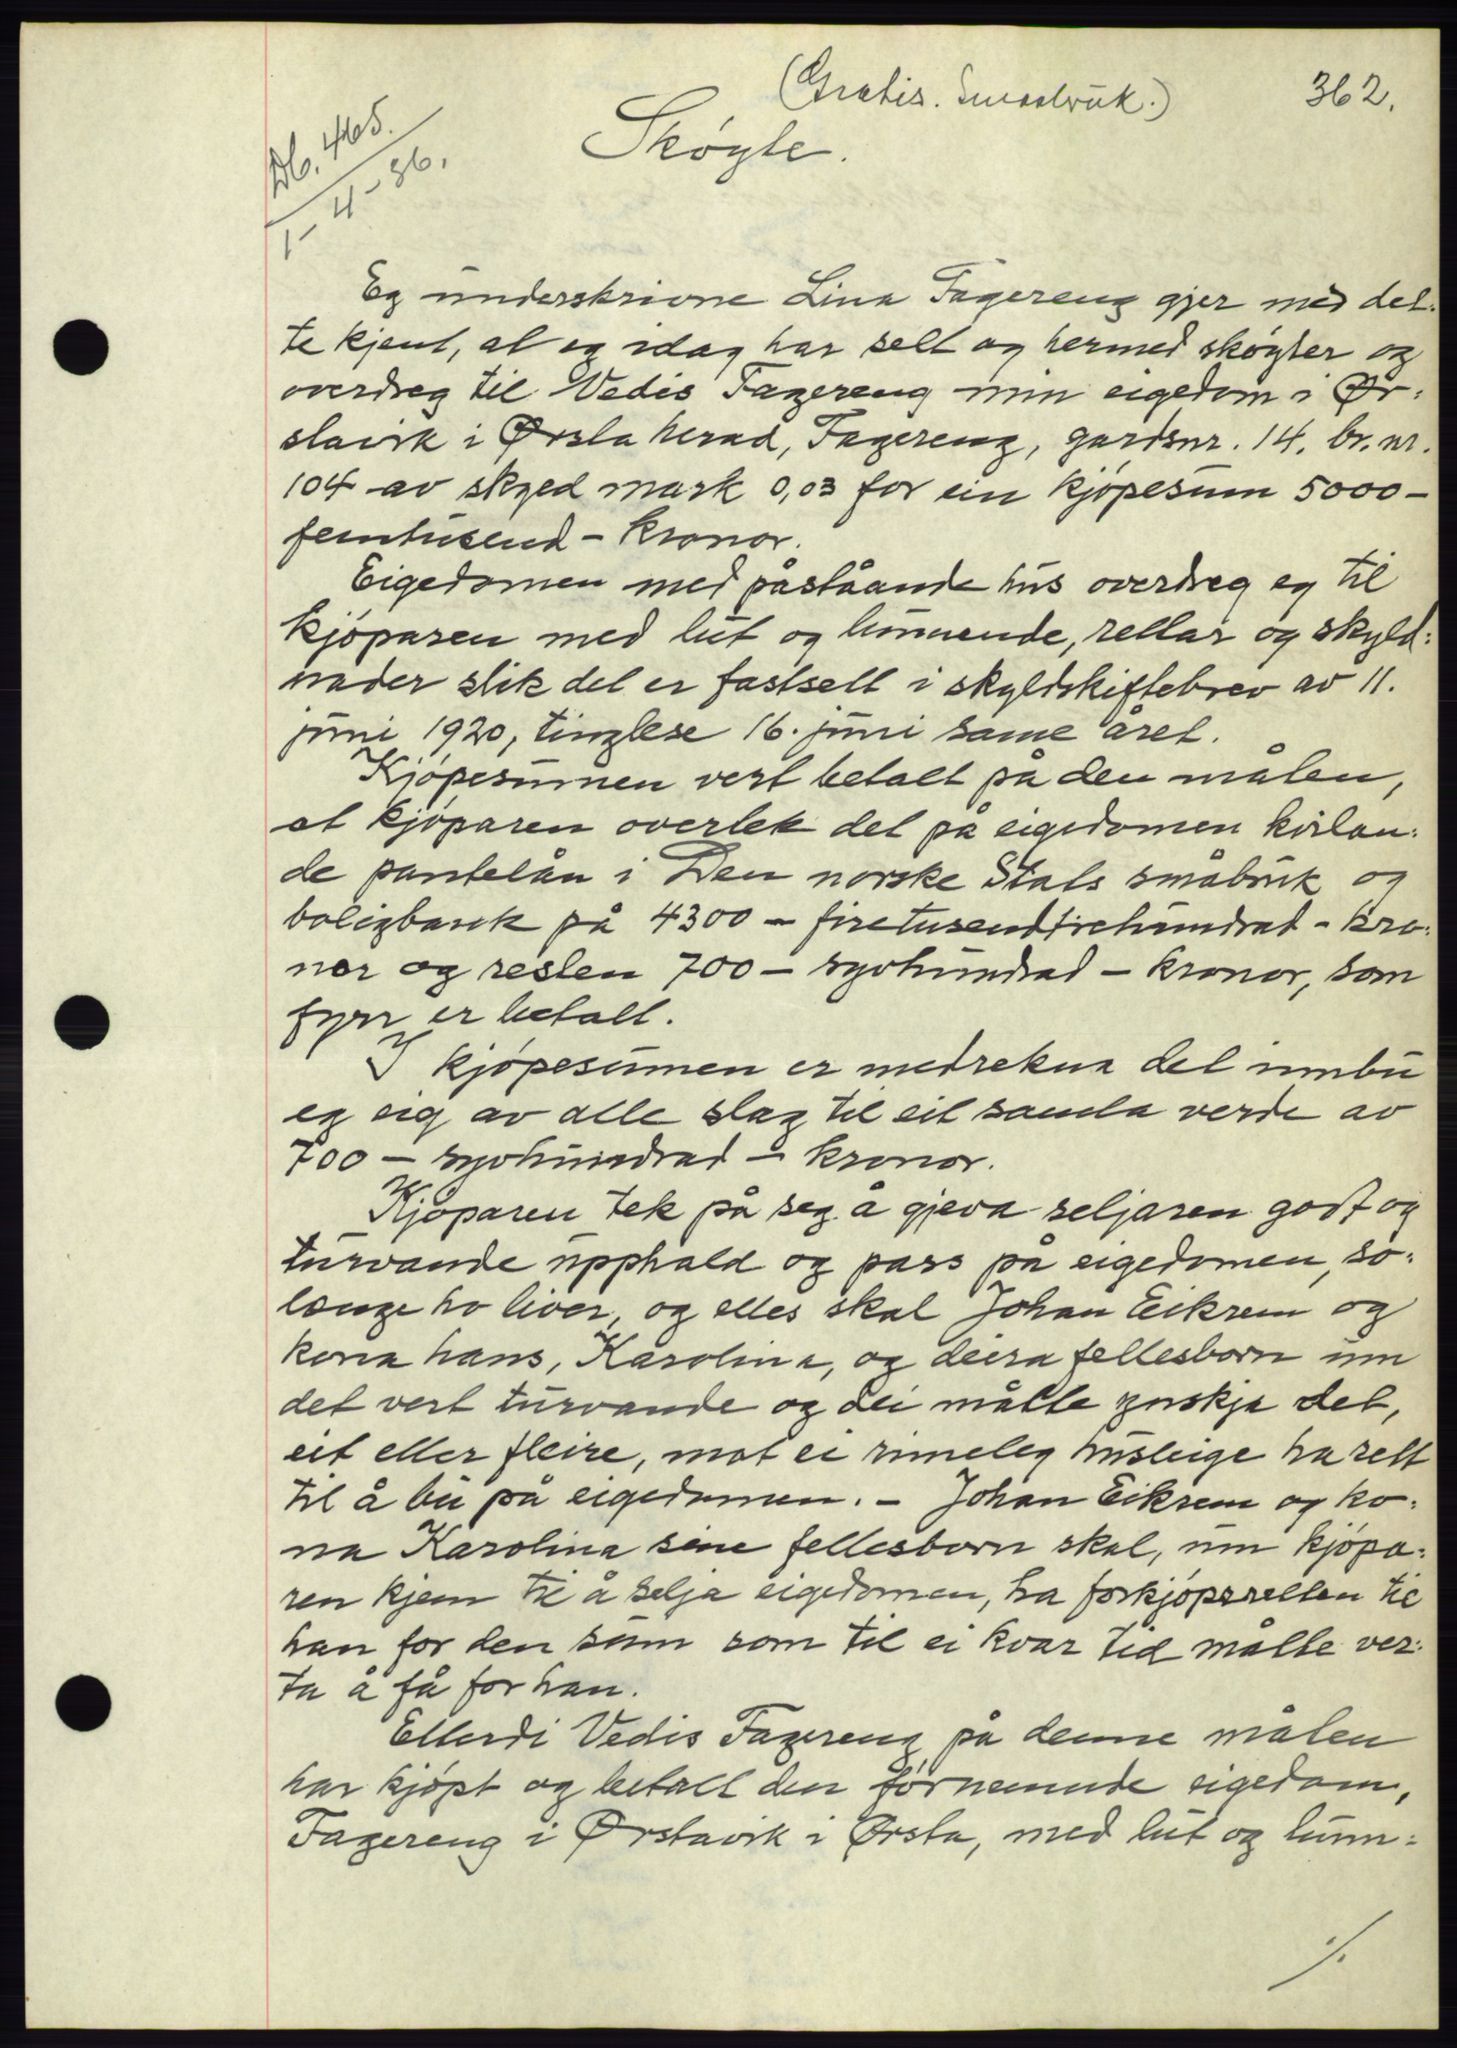 (Gratis. Småbruk.)
362.
Skøyte.
Db. 465.
1-4-36.
Eg underskrivne Lina Fagereng gjer med det-
te kjent, at eg idag har selt og hermed skøyter og
overdreg til Vedis Fagereng min eigedom i Ør-
stavik i Ørsta herad, Fagereng, gardsnr. 14. br. nr.
104 av skyld mark 0,03 for ein kjøpesum 5000 -
femtusend - kronor.
Eigedomen med påståande hus overdreg eg til
kjøparen med lut og lunnende, rettar og skyld-
nader slik det er fastsett i skyldskiftebrev av 11.
juni 1920, tinglese 16. juni same året.
Kjøpesumen vert betalt på den måten,
at kjøparen overtek det på eigedomen kvilan-
de pantelån i Den norske Stats småbruk og
boligbank på 4300 - firetusendtrehundrad - kro-
nor og resten 700 - syvhundrad - kronor, som
fyrr er betalt.
I kjøpesumen er medrekna det innbu
eg eig av alle slag til eit samla verde av
700 - syvhundrad - kronor.
Kjøparen tek på seg å gjeva seljaren godt og
turvande upphald og pass på eigedomen, so-
længe ho liver, og elles skal Johan Eikrem og
kona hans, Karolina, og deira fellesborn um
det vert turvande og dei måtte ynskja det,
eit eller fleire, mot ei rimeleg husleige ha rett
til å bu på eigedomen. - Johan Eikrem og ko-
na Karolina sine fellesborn skal, um kjøpa-
ren kjem til å selja eigedomen, ha forkjøpsretten til
han for den sum som til ei kvar tid måtte ver-
ta å få for han.
Ettersdi Vedis Fagereng på denne måten
har kjøpt og betalt den fornemnde eigedom,
Fagereng i Ørstavik i Ørsta, med lut og lunn-
./.